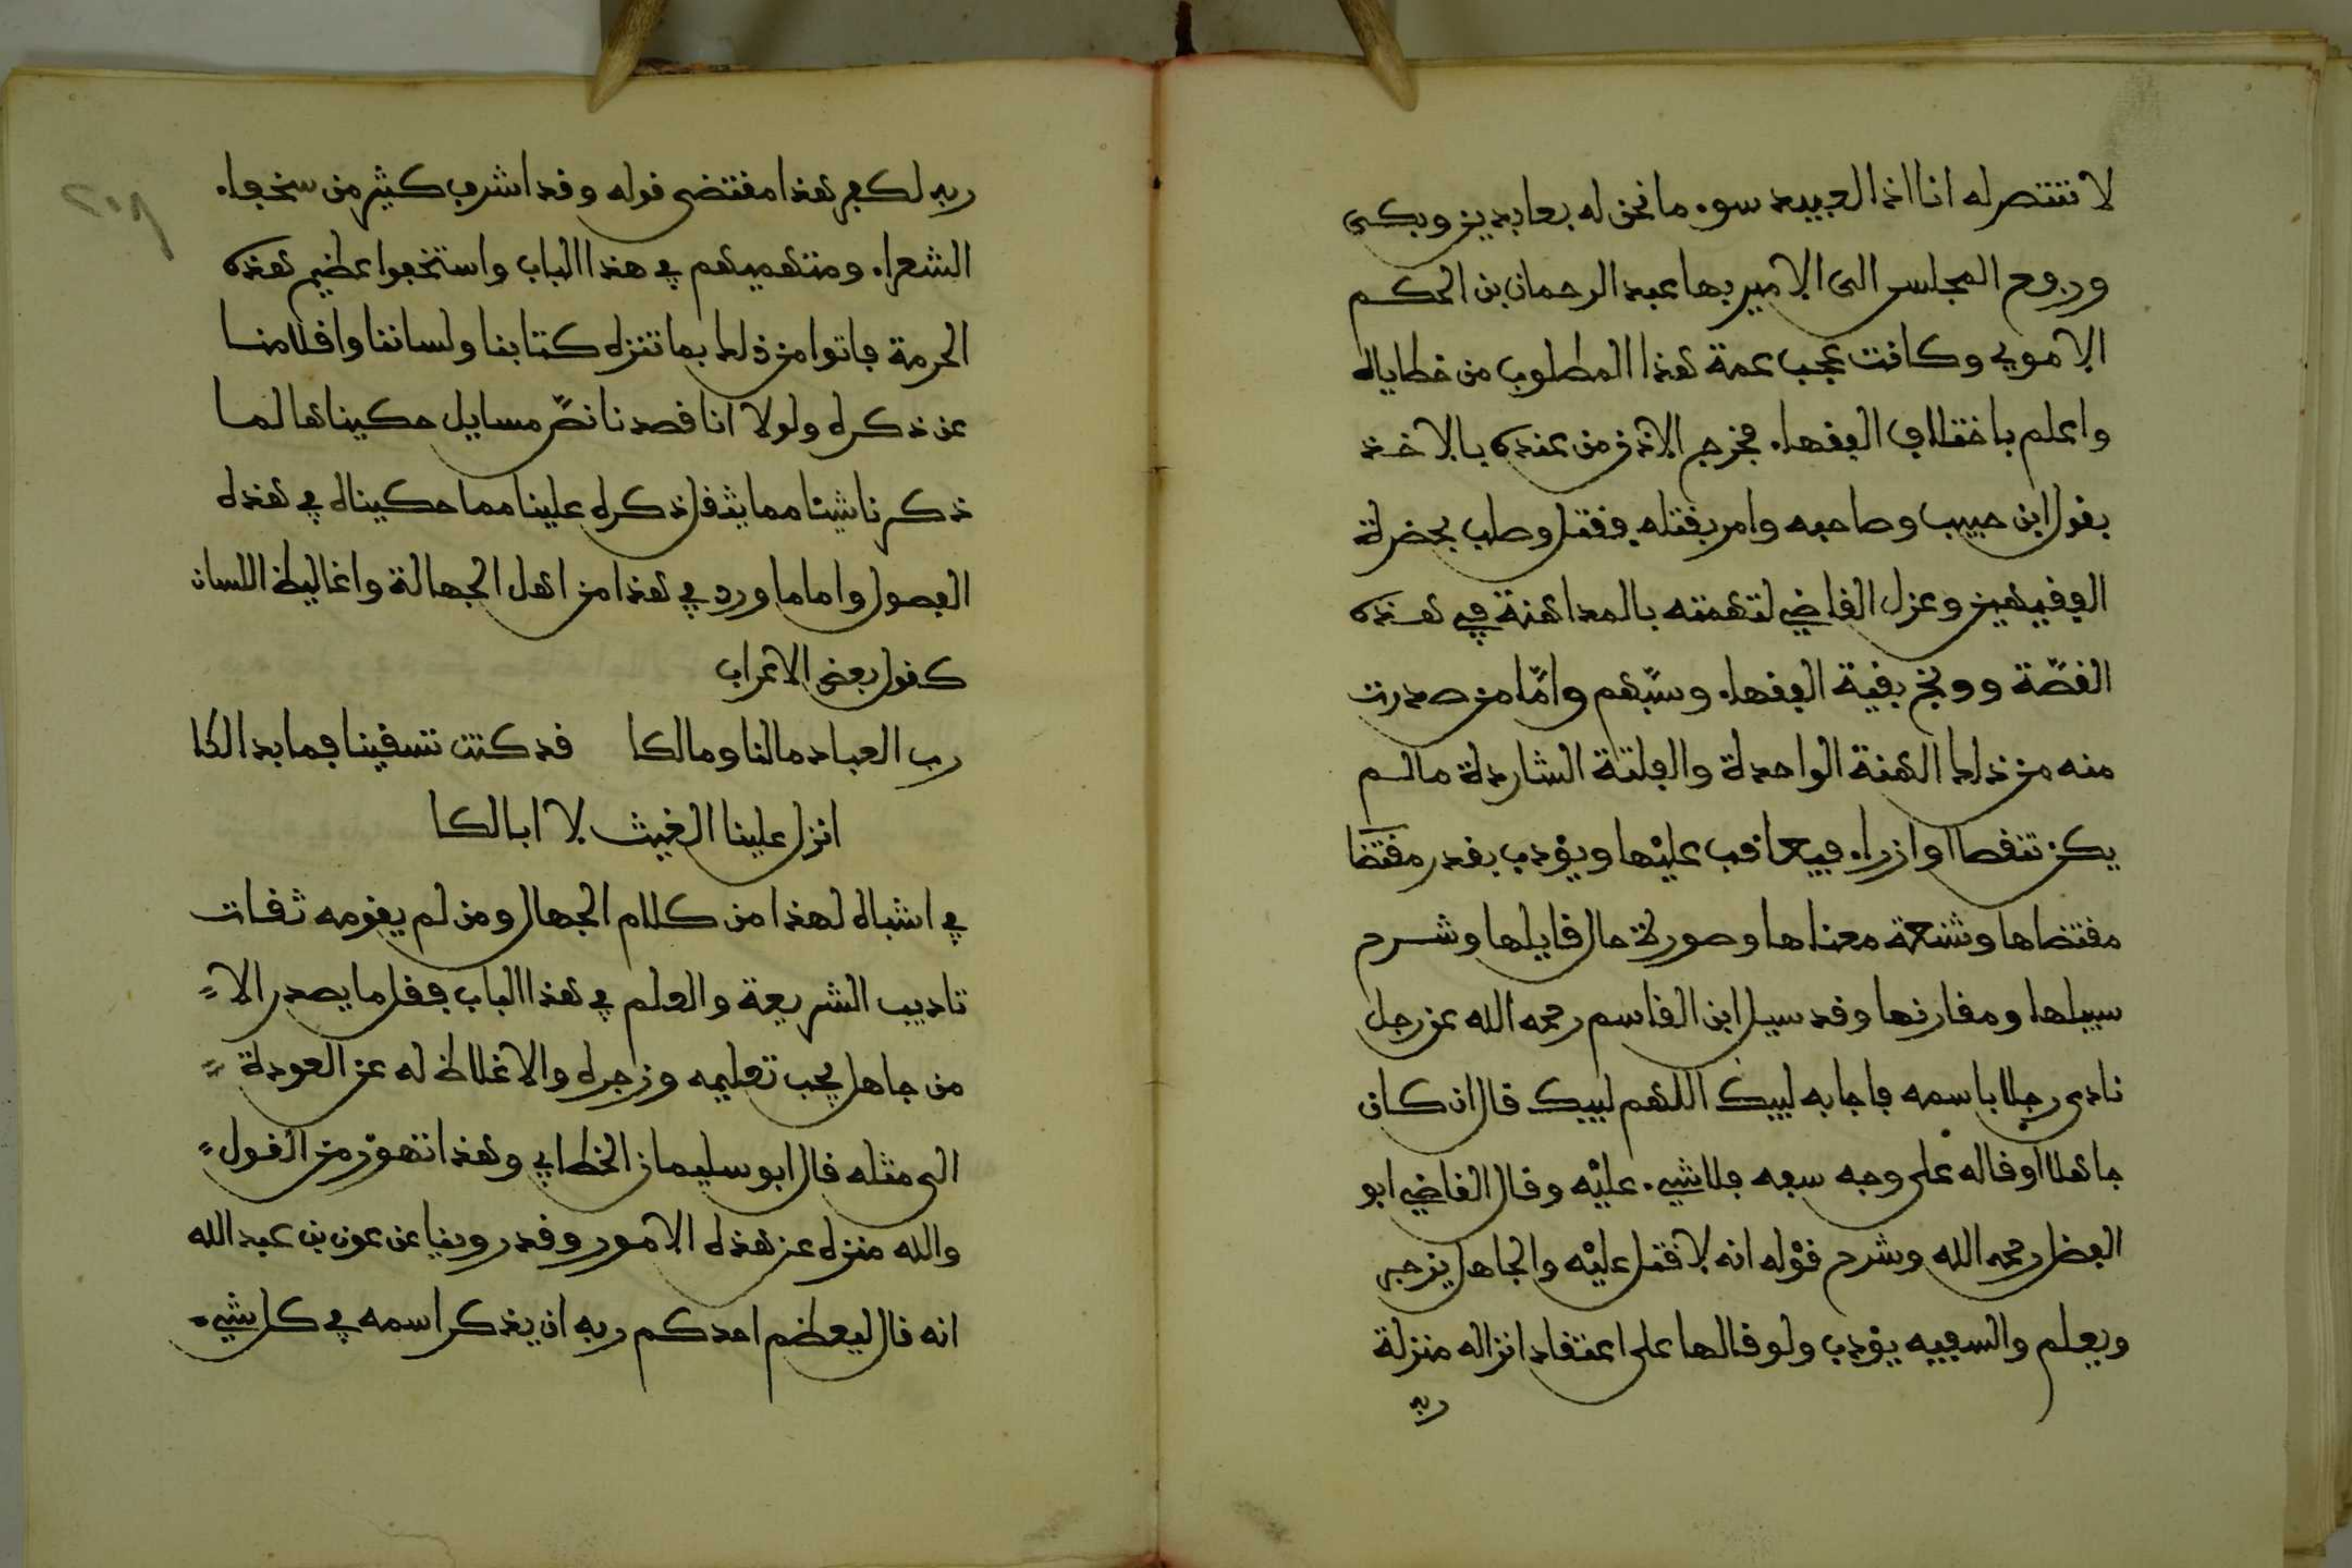 لا ننتصر له انا اذا لعبيد سوء ما نحن له بعابدين وبكى
ورفع المجلس الى الامير بها عبد الرحمان بن الحكم
الاموي وكانت عجب عمة هذا المطلوب من خطاياه
واعلم باختلاف الفقهاء فخرج الاذن من عنده بالاخذ
بقول ابن حبيب وصاحبه وامر بقتله فقتل وصلب بحضرة
الفقيهين وعزل القاضي لتهمته بالمداهنة في هذه
القصّة ووبخ بقية الفقهاء وسبّهم وامّا من صدرت
منه من ذلك الهنة الواحدة والفلتة الشاردة ما لم
يكن تنقصا او ازراء فيعاقب عليها ويؤدب بقدر مقتضا
مقتضاها وشنعة معناها وصورة حال قايلها وشرح
سببها ومقارنها وقد سيل ابن القاسم رحمه الله عن رجل
نادى رجلا باسمه فاجابه لبيك اللهم لبيك قال ان كان
جاهلا او قاله على وجه سفه فلا شيء عليه وقال القاضي ابو
الفضل رحمه الله وشرح قوله انه لا قتل عليه والجاهل يزجر
ويعلم والسفيه يؤدب ولو قالها على اعتقاد انزاله منزلة
ربه
ربه لكفر هذا مقتضى قوله وقد اشرف كثير من سخفاء
الشعراء ومتهميهم في هذا الباب واستخفوا عظيم هذه
الحرمة فاتوا من ذلك بما ننزه كتابنا ولساننا واقلامنا
عن ذكره ولولا انا قصدنا نصّ مسايل حكيناها لما
ذكرنا شيئا مما يثقل ذكره علينا مما حكيناه في هذه
الفصول واما ما ورد في هذا من اهل الجهالة واغاليط اللسان
كقول بعض الاعراب
رب العباد ما لنا وما لكا قد كنت تسقينا فما بدا لكا
انزل علينا الغيث لا ابا لكا
في اشباه لهذا من كلام الجهال ومن لم يقومه ثقات
تاديب الشريعة والعلم في هذا الباب فقل ما يصدر الا
من جاهل يجب تعليمه وزجره والاغلاظ له عن العودة
الى مثله قال ابو سليمان الخطابي وهذا تهور من القول
والله منزه عن هذه الامور وقد روينا عن عون بن عبد الله
انه قال ليعظم احدكم ربه ان يذكر اسمه في كل شيء